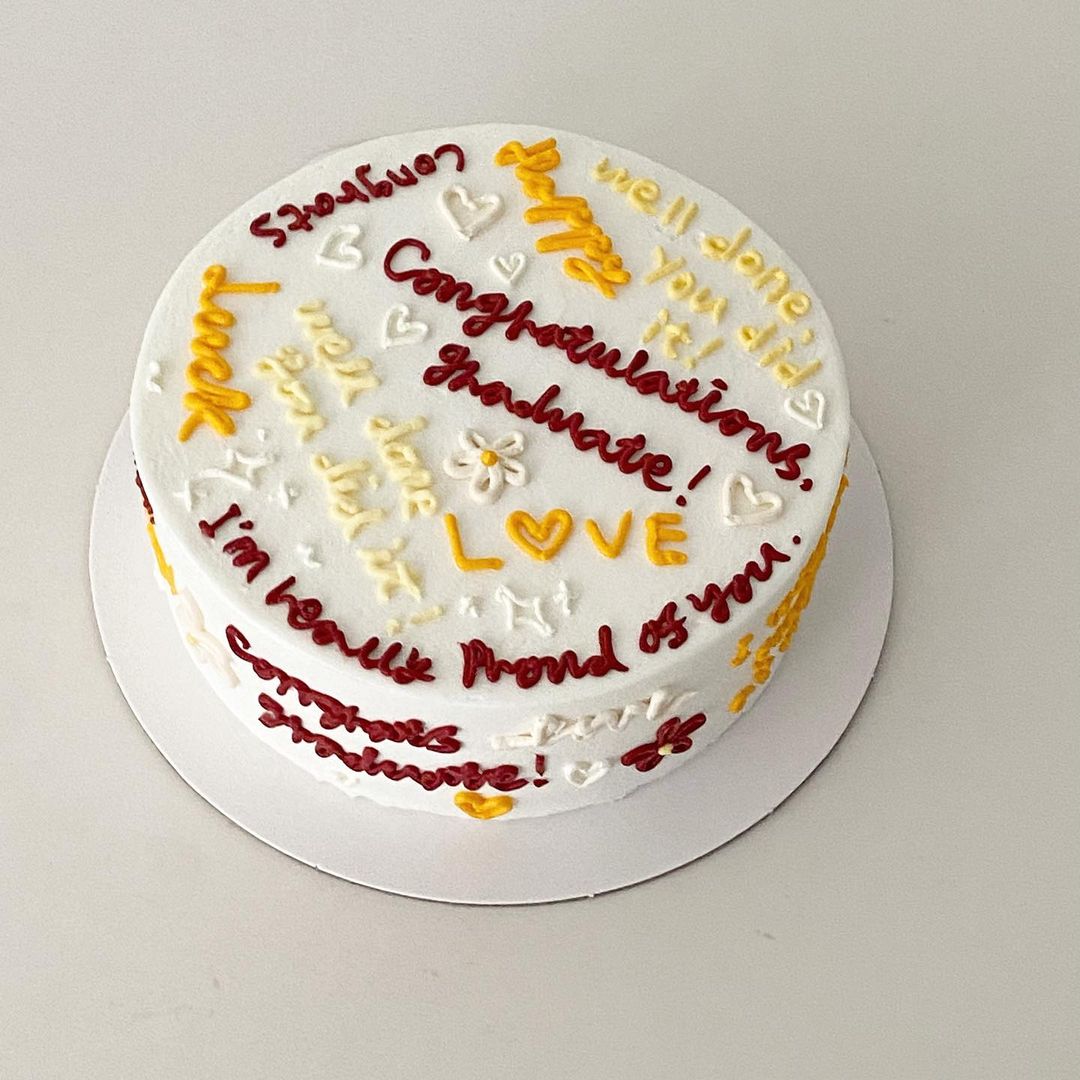 congrats
happy
well done
you did
it!
Congratulations,
graduate!
Luck
well done
you did it!
LOVE
I'm really Proud of you.
Congrats
graduate!